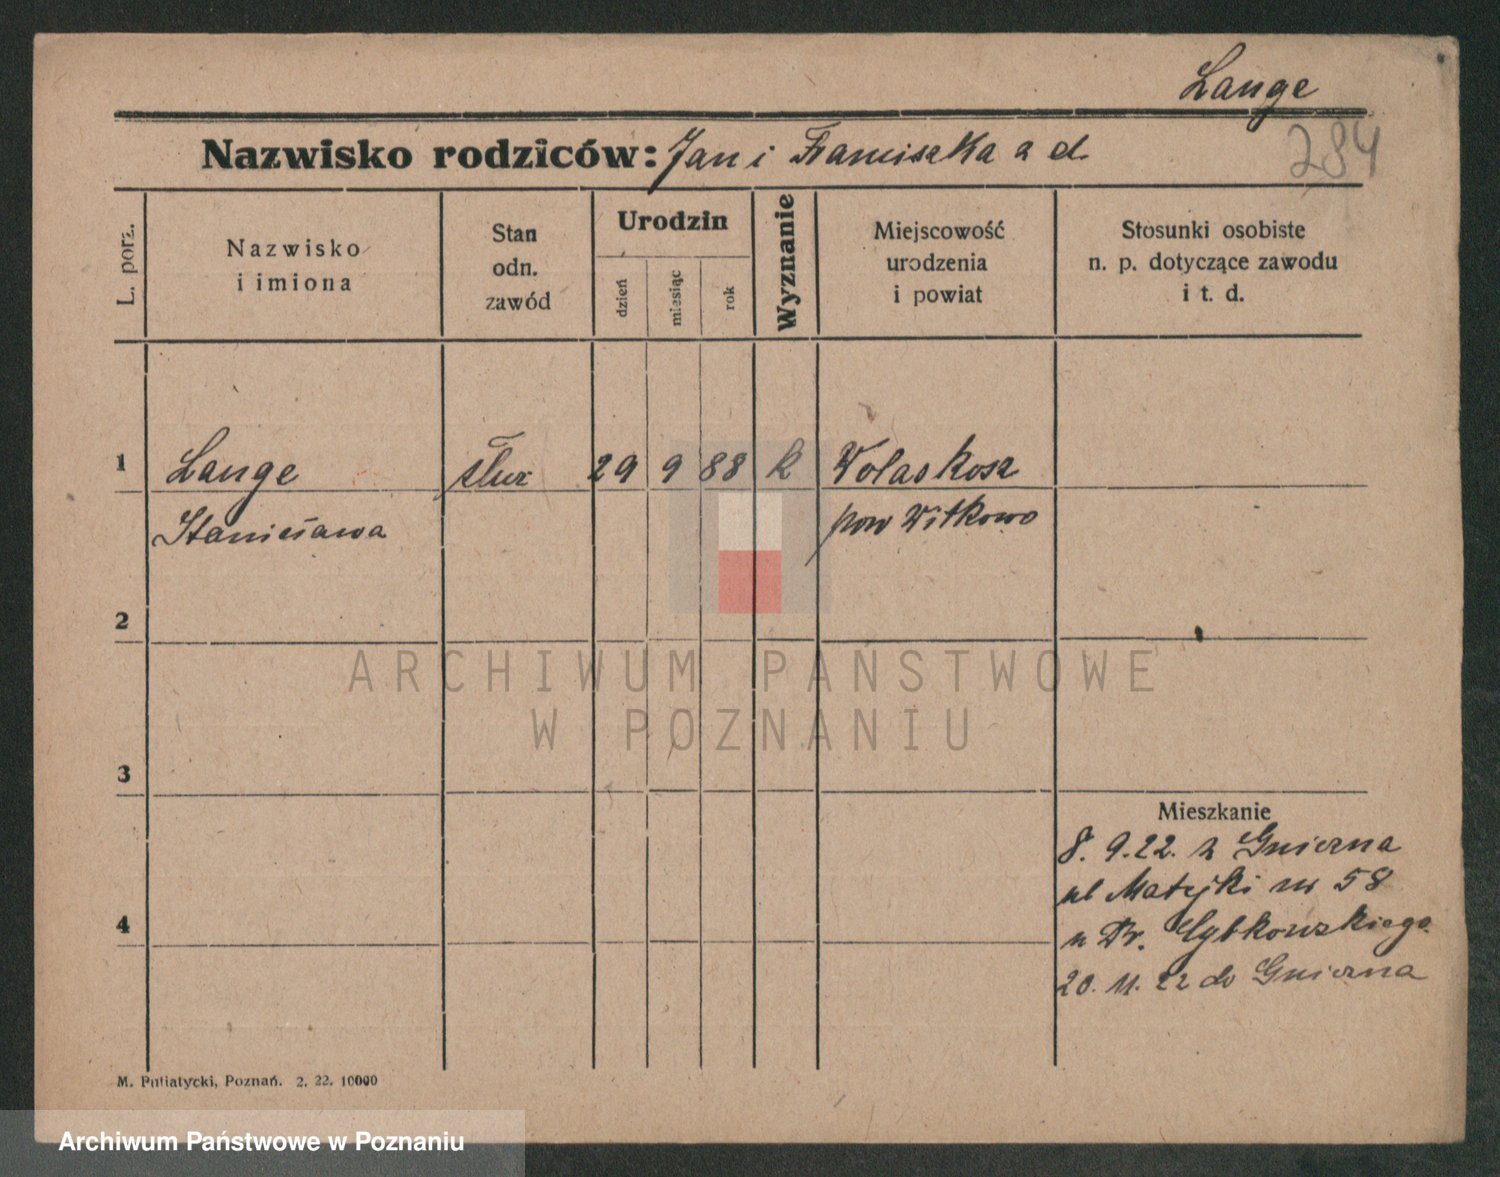 Lange
284
Nazwisko rodziców: Jan i Franciszka a d.
L. porz.
Nazwisko
i imiona
Stan
odn.
zawód
Urodzin
dzień
miesiąc
rok
Wyznanie
Miejscowość
urodzenia
i powiat
Stosunki osobiste
n. p. dotyczące zawodu
i t. d.
1 Lange służ 29 9 88 k Wolaskosz
Stanisława pow Witkowo
2
3
Mieszkanie
8. 9. 22. z Gniezna
ul Matejki nr 58
4
u Dr.
20. 11. 22 do Gniezna
M. Putiatycki, Poznań. 2. 22. 10000
ARCHIWUM PAŃSTWOWE
W POZNANIU
Archiwum Państwowe w Poznaniu